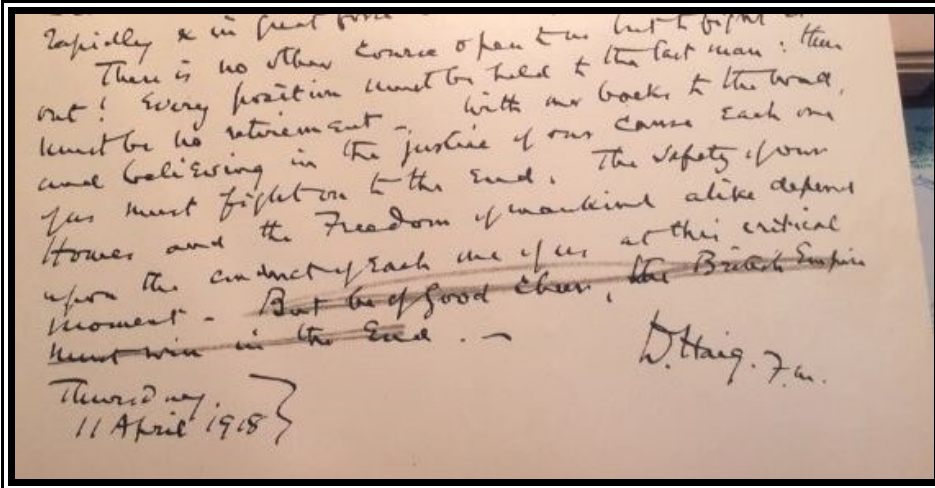 rapidly & in great force
There is no other course open to us but to fight it
out! Every position must be held to the last man: there
must be no retirement. With our backs to the wall,
and believing in the justice of our cause each one
of us must fight on to the end. The safety of our
Homes and the Freedom of mankind alike depend
upon the conduct of each one of us at this critical
moment. - But be of good cheer, the British Empire
must win in the End. -
D. Haig. F.M.
Thursday.
11 April 1918